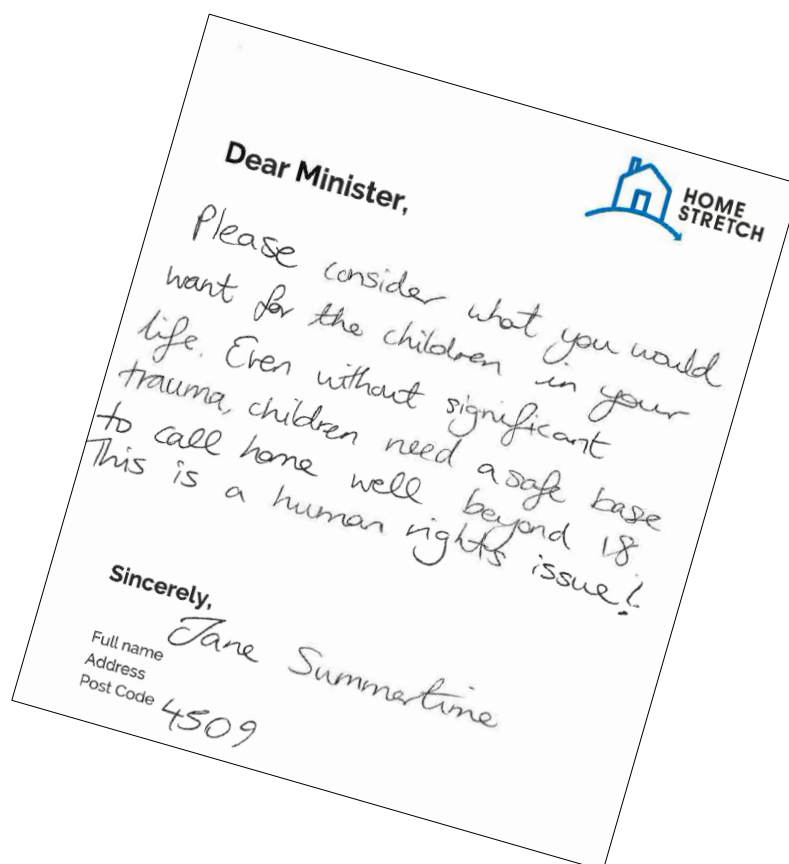 Dear Minister,
HOME
STRETCH
Please consider what you would
want for the children in your
life. Even without significant
trauma, children need a safe base
to call home well beyond 18
This is a human rights issue!
Sincerely,
Full name Jane Summertime
Address
Post Code 4509